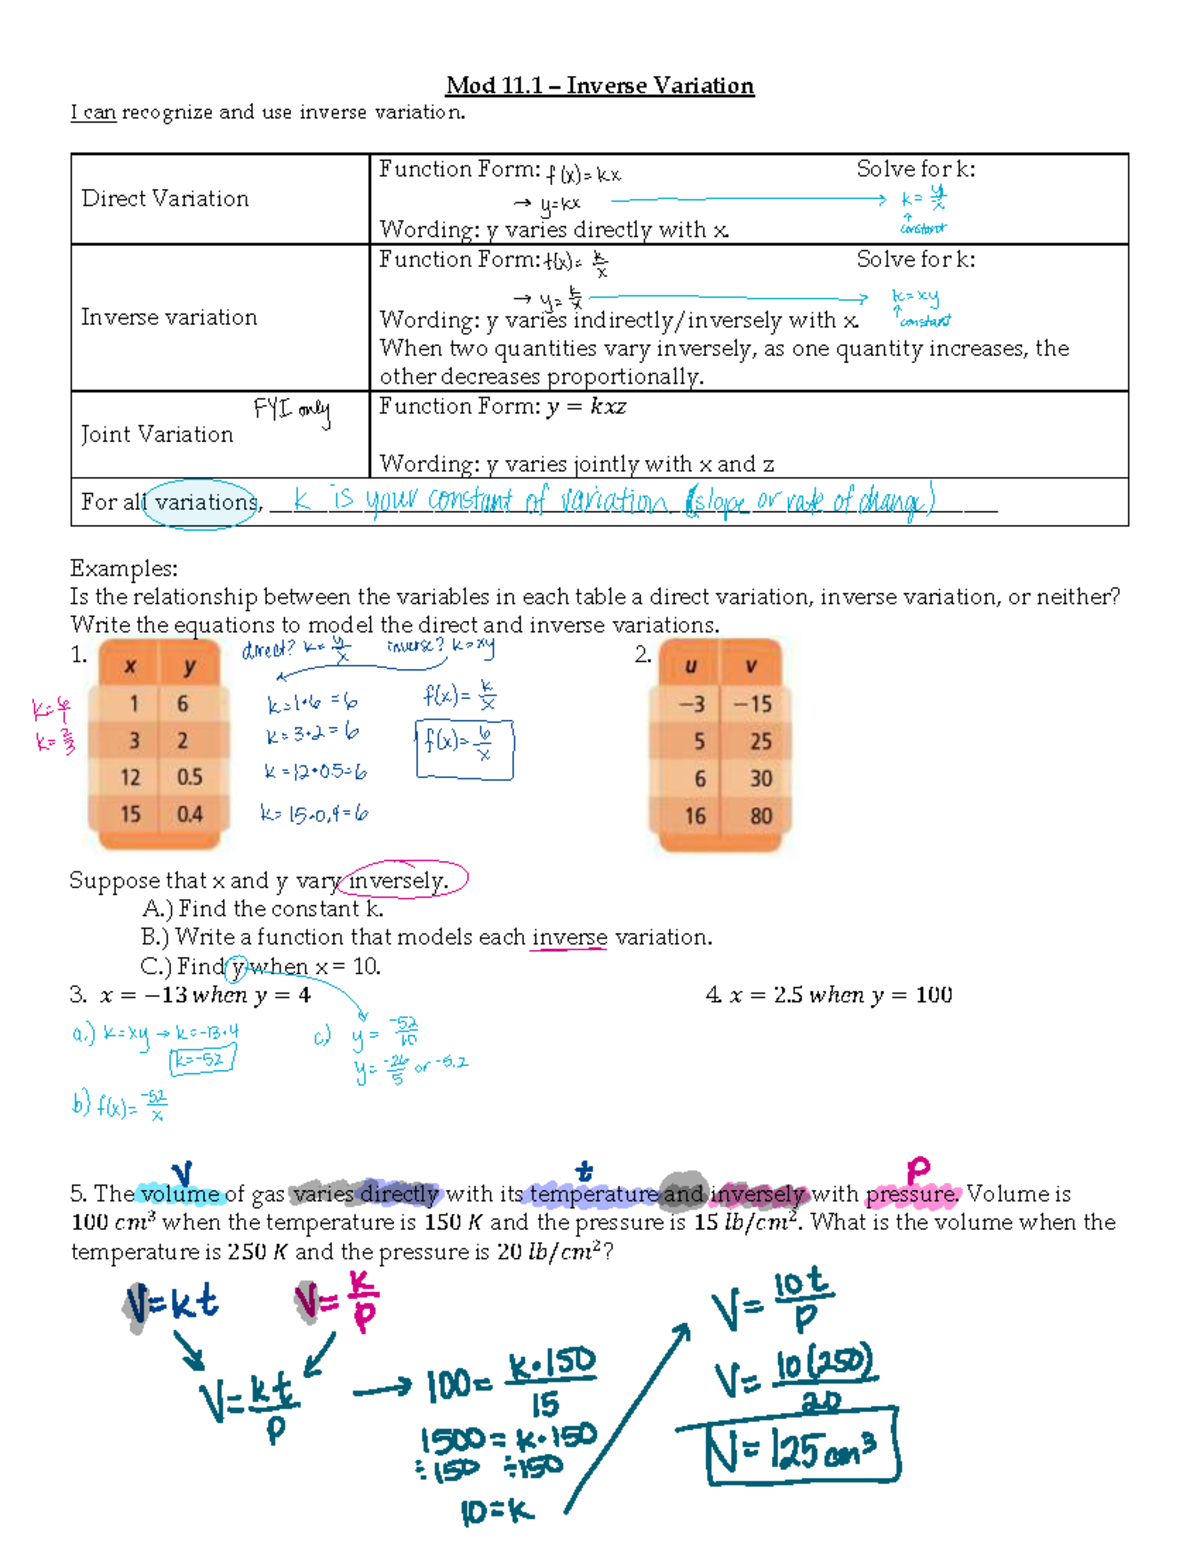 Mod 11.1 – Inverse Variation
I can recognize and use inverse variation.
Direct Variation
Function Form: f(x)=kx Solve for k:
→ y=kx → k= y/x
↑ constant
Wording: y varies directly with x.
Inverse variation
Function Form: f(x)= k/x Solve for k:
→ y= k/x → k=xy
↑ constant
Wording: y varies indirectly/inversely with x.
When two quantities vary inversely, as one quantity increases, the
other decreases proportionally.
Joint Variation FYI only
Function Form: y = kxz
Wording: y varies jointly with x and z
For all variations, k is your constant of variation (slope or rate of change)
Examples:
Is the relationship between the variables in each table a direct variation, inverse variation, or neither?
Write the equations to model the direct and inverse variations.
1.
x y
1 6
3 2
12 0.5
15 0.4
k= 6/1
k= 2/3
direct? k= y/x inverse? k=xy
k=1•6 =6
k=3•2=6
k=12•0.5=6
k=15•0.4=6
f(x)= k/x
f(x)= 6/x
2.
u v
−3 −15
5 25
6 30
16 80
Suppose that x and y vary inversely.
A.) Find the constant k.
B.) Write a function that models each inverse variation.
C.) Find y when x = 10.
3. x = −13 when y = 4
a.) k=xy → k=-13•4
k=-52
b) f(x)= -52/x
c) y= -52/10
y= -26/5 or -5.2
4. x = 2.5 when y = 100
V t p
5. The volume of gas varies directly with its temperature and inversely with pressure. Volume is
100 cm³ when the temperature is 150 K and the pressure is 15 lb/cm². What is the volume when the
temperature is 250 K and the pressure is 20 lb/cm²?
V=kt V= k/p
V= kt/p → 100= k•150/15
1500=k•150
÷150 ÷150
10=k
V= 10t/p
V= 10(250)/20
V=125cm³